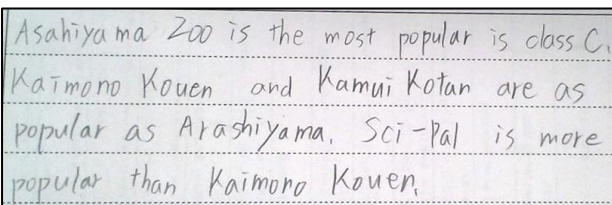 Asahiyama Zoo is the most popular is class C.
Kaimono Kouen and Kamui Kotan are as
popular as Arashiyama. Sci-Pal is more
popular than Kaimono Kouen.